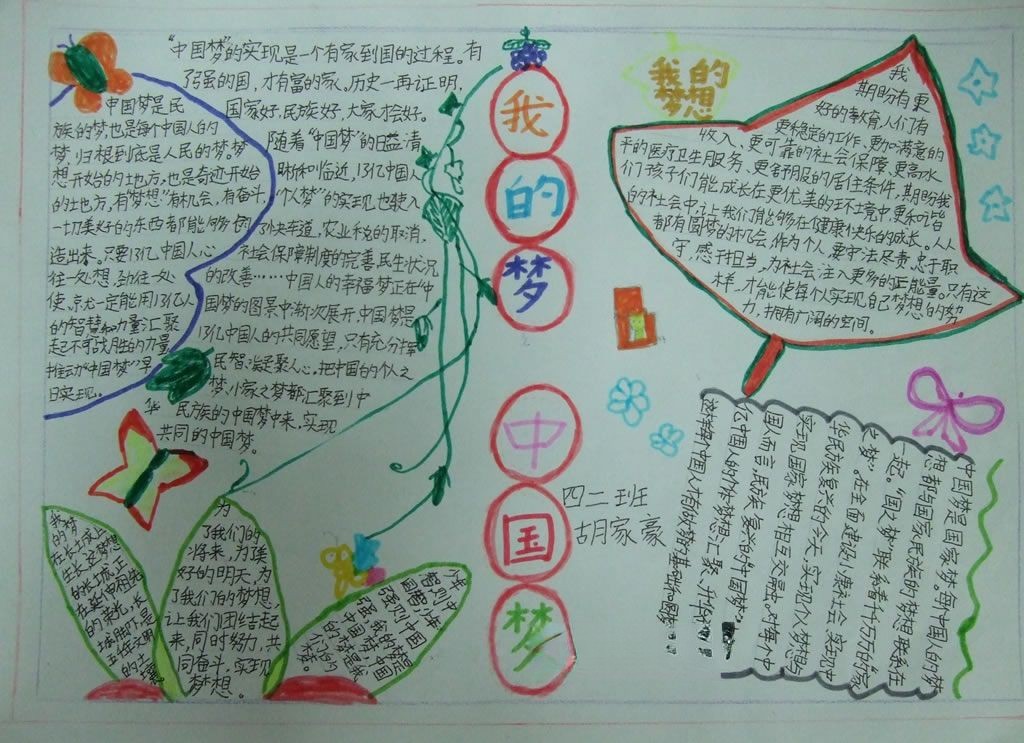 "中国梦"的实现是一个有家到国的过程。有
了强的国，才有富的家。历史一再证明，
国家好，民族好，大家才会好。
随着"中国梦"的日益清
晰和临近，13亿中国人
"个人梦"的实现也驶入
了快车道，农业税的取消，
社会保障制度的完善，民生状况
的改善……中国人的幸福梦正在中
国梦的图景中渐次展开，中国梦是
13亿中国人的共同愿望，只有充分挥
民智，凝聚人心，把中国的个人之
梦、小家之梦都汇聚到中
华民族的中国梦中来，实现
共同的中国梦。
中国梦是民
族的梦也是每个中国人的
梦，归根到底是人民的梦。梦
想开始的土地方，也是奇迹开始
的土地方，有梦想，有机会，有奋斗，
一切美好的东西都能够创
造出来。只要13亿中国人心
往一处想，劲往一处
使，就一定能用13亿人
的智慧和力量汇聚
起不可战胜的力量
推动"中国梦"早
日实现。
我的梦
中国梦
我的
梦想
我
期盼有更
好的教育，人们有
更稳定的工作、更加满意的
收入、更可靠的社会保障、更高水
平的医疗卫生服务、更舒服的居住条件，期盼我
们孩子们能成长在更优美的环境中，更和谐
的社会中，让我们能够在健康快乐的成长。人人
都有圆梦的机会，作为个人，要守法尽责，忠于职
守，感于担当，为社会注入更多的正能量。只有这
样，才能使每个人实现自己梦想的努
力，拥有广阔的空间。
四二班
胡家豪
中国梦是国家梦。每个中国人的梦
想都与国家民族的梦想联系在
一起。"国之梦"联系着千千万万的"家
之梦"。在全面建设小康社会实现中
华民族复兴的今天，实现个人梦想与
实现国家梦想相互交融。对每个中
国人而言，民族复兴的"中国梦"
亿中国人的个体梦想汇聚、升华
这样每个中国人有的放矢的基础和
为
了我们的
将来，为美
好的明天，为
了我们的梦想，
让我们团结起
来，同时努力，共
同奋斗，实现
梦想。